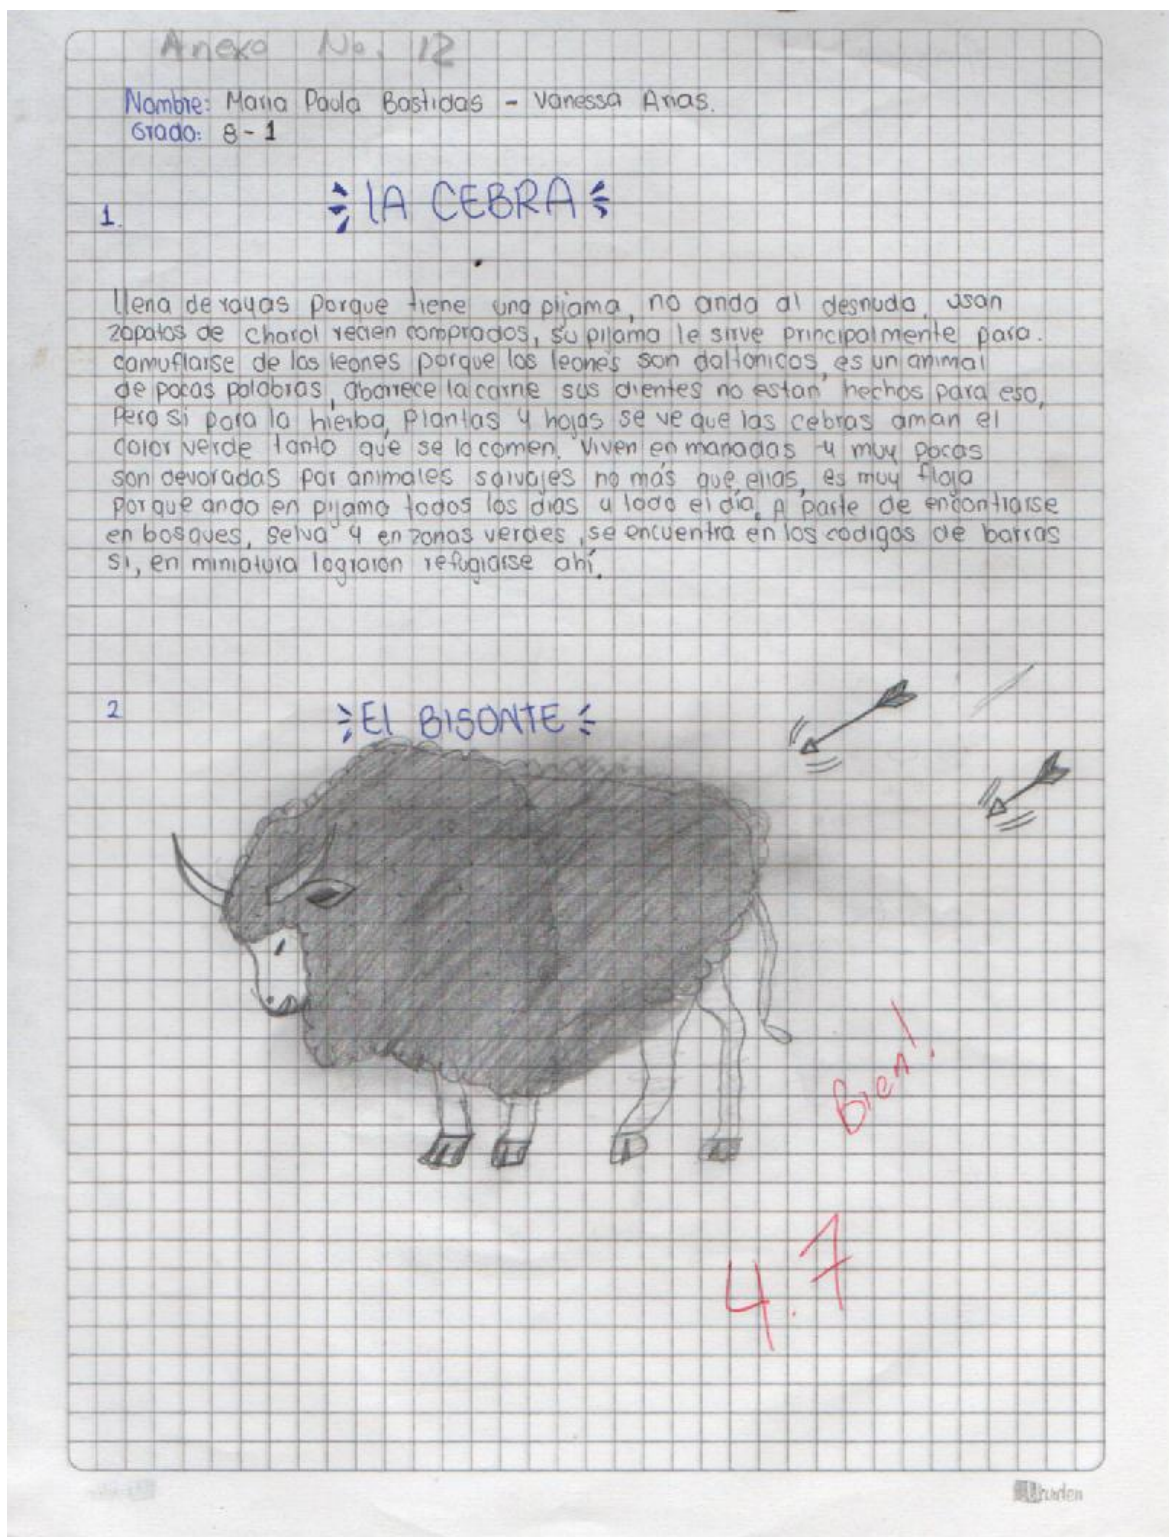 Anexo No. 12
Nombre: Maria Paula Bastidas - Vanessa Arias.
Grado: 8-1
1. LA CEBRA
llena de rayas porque tiene una pijama, no anda al desnudo, usan
zapatos de charol recien comprados, su pijama le sirve principalmente para.
camuflarse de los leones porque los leones son daltonicos, es un animal
de pocas palabras, aborrece la carne sus dientes no estan hechos para eso,
Pero si para la hierba, plantas y hojas se ve que las cebras aman el
color verde tanto que se lo comen. Viven en manadas y muy pocas
son devoradas por animales salvajes no más que ellas, es muy floja
porque anda en pijama todos los dias y todo el día, A parte de encontrarse
en bosques, selva y en zonas verdes, se encuentra en los codigos de barras
si, en miniatura lograron refugiarse ahí.
2 El BISONTE
Bien!
4.7